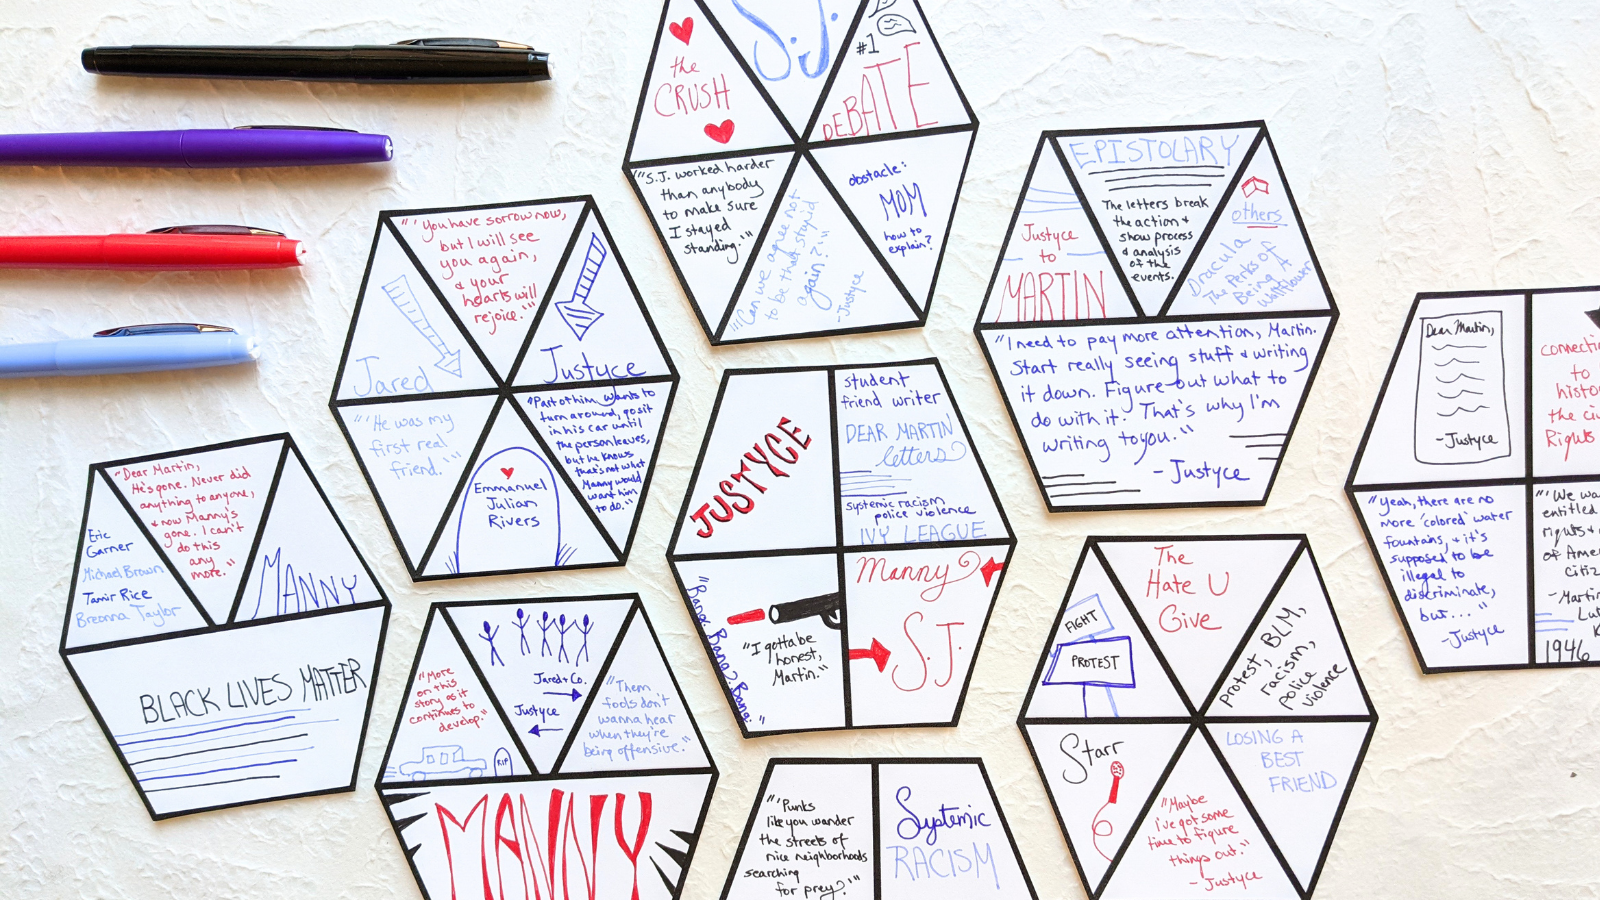 the
CRUSH
S.J.
#1
DEBATE
"S.J. worked harder
than anybody
to make sure
I stayed
standing."
"'Can we agree not
to be that stupid
again?'"
-Justyce
obstacle:
MOM
how to
explain?
"'You have sorrow now,
but I will see
you again,
& your
hearts will
rejoice.'"
Jared
Justyce
"'He was my
first real
friend.'"
Emmanuel
Julian
Rivers
"Part of him wants to
turn around, go sit
in his car until
the person leaves,
but he knows
that's not what
Manny would
want him
to do."
Justyce
to
MARTIN
EPISTOLARY
The letters break
the action &
show process
& analysis
of the
events.
others
Dracula
The Perks of
Being A
Wallflower
"I need to pay more attention, Martin.
Start really seeing stuff & writing
it down. Figure out what to
do with it. That's why I'm
writing to you."
-Justyce
Dear Martin,
-Justyce
connecti
to
histo
the ci
Rights
"Yeah, there are no
more 'colored' water
fountains, & it's
supposed to be
illegal to
discriminate,
but...."
-Justyce
"'We wa
entitled
rights &
of Amer
citiz
-Martin
Lut
K
1946
Eric
Garner
Michael Brown
Tamir Rice
Breonna Taylor
"Dear Martin,
He's gone. Never did
anything to anyone,
& now Manny's
gone. I can't
do this
any
more."
MANNY
BLACK LIVES MATTER
JUSTYCE
student
friend writer
DEAR MARTIN
letters
systemic racism
police violence
IVY LEAGUE
"Bang. Bang? Bang."
"I gotta be
honest,
Martin."
Manny
S.J.
"More
on this
story as it
continues to
develop."
RIP
Jared & Co.
Justyce
"Them
fools don't
wanna hear
when they're
being offensive."
MANNY
"'Punks
like you wander
the streets of
nice neighborhoods
searching
for prey?'"
Systemic
RACISM
FIGHT
PROTEST
The
Hate U
Give
protest, BLM,
racism,
police
violence
Starr
"Maybe
I've got some
time to figure
things out."
-Justyce
LOSING A
BEST
FRIEND